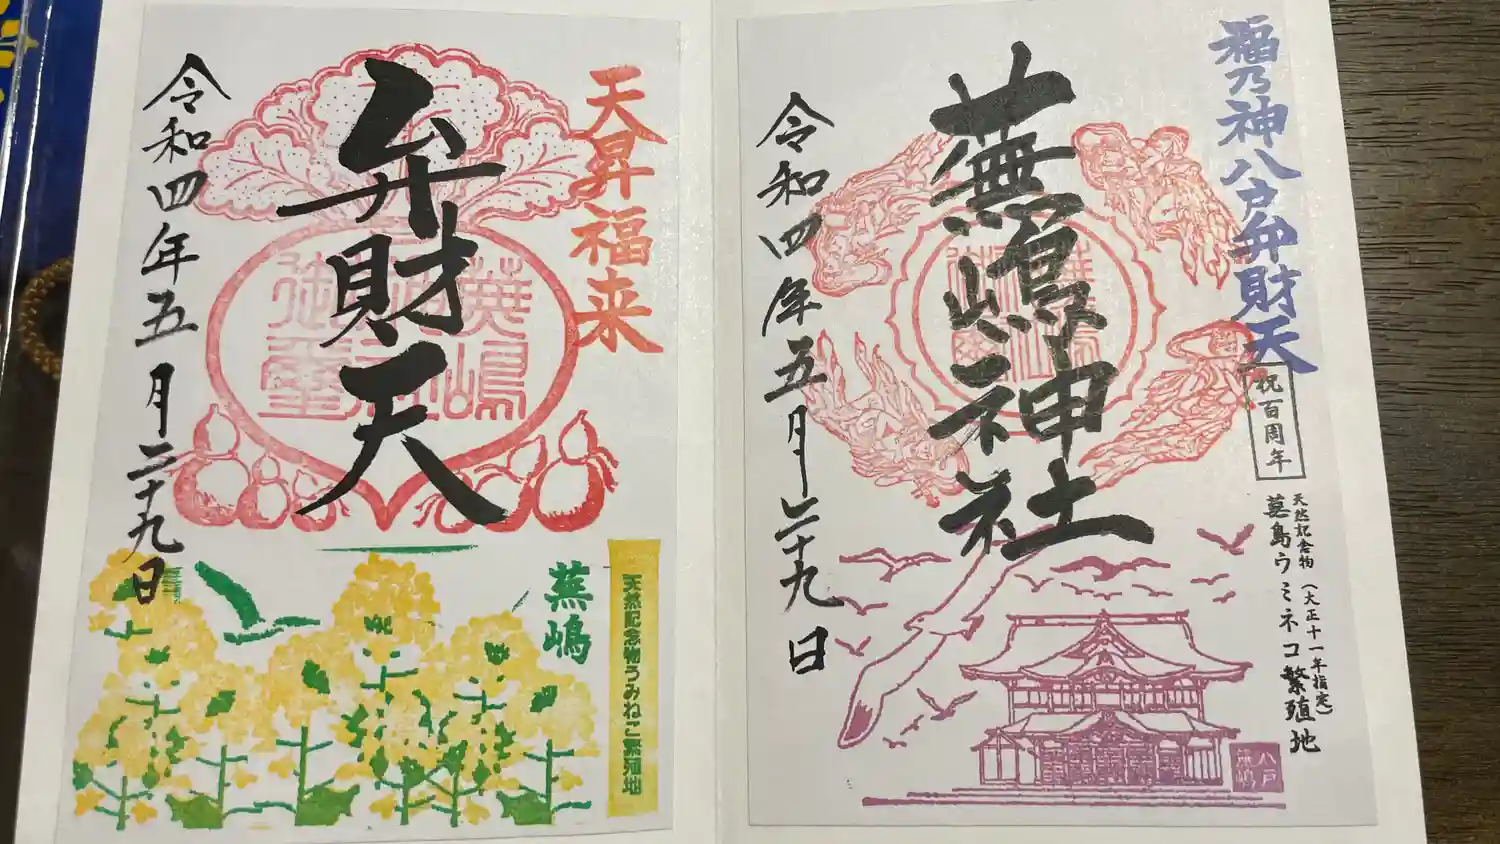 福乃神八戸弁財天
祝百周年
天然記念物(大正十一年指定)
蕪島ウミネコ繁殖地
蕪嶋神社
令和四年五月二十九日
八戸
蕪嶋
天昇福来
弁財天
蕪嶋
御璽
令和四年五月二十九日
蕪嶋
天然記念物うみねこ繁殖地